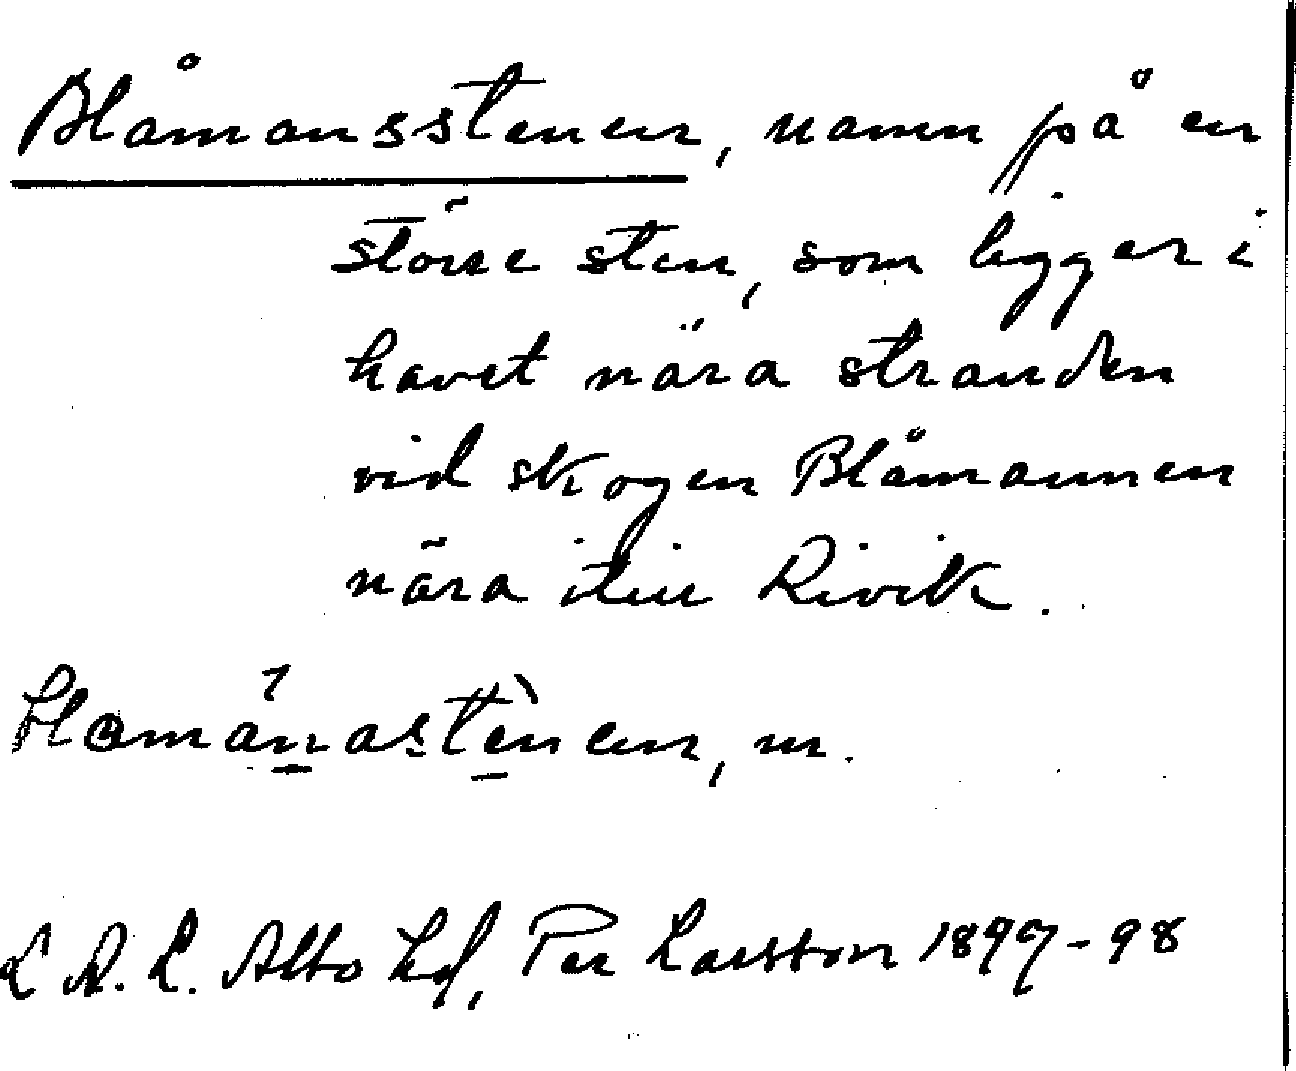 Blåmansstenen, namn på en
större sten, som ligger i
havet nära stranden
vid skogen Blåmannen
nära Kivik.
blomånastenen, m.
L. A. L. Albo hd, Per Larsson 1897-98